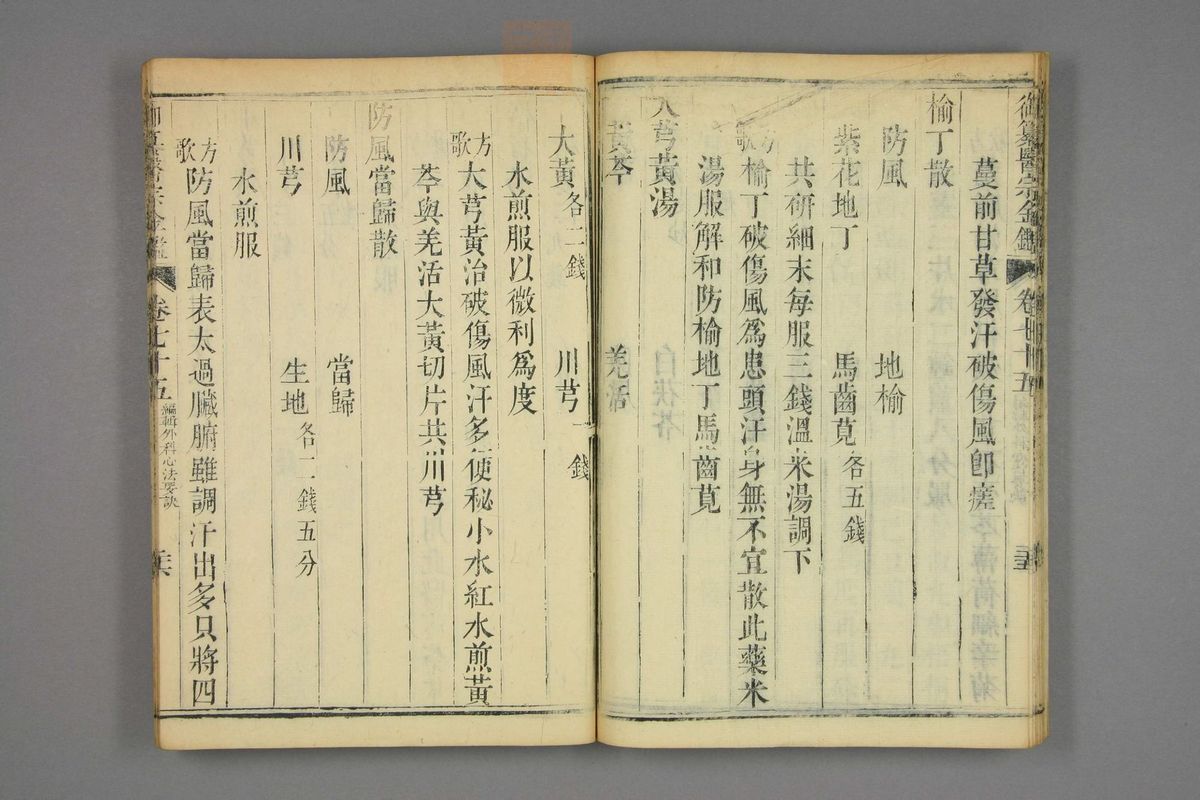 御纂醫宗金鑑 卷七十五
蔓前甘草發汗破傷風卽瘥
榆丁散
防風 地榆
紫花地丁 馬齒莧各五錢
共研細末每服三錢溫米湯調下
方歌 榆丁破傷風爲患頭汗身無不宜散此藥米
湯服解和防榆地丁馬齒莧
大芎黃湯
黃芩 羌活
大黃各二錢 川芎一錢
水煎服以微利爲度
方歌 大芎黃治破傷風汗多便秘小水紅水煎黃
芩與羌活大黃切片共川芎
防風當歸散
防風 當歸
川芎 生地各二錢五分
水煎服
方歌 防風當歸表太過臟腑雖調汗出多只將四
御纂醫宗金鑑 卷七十五 編輯外科心法要訣 二六